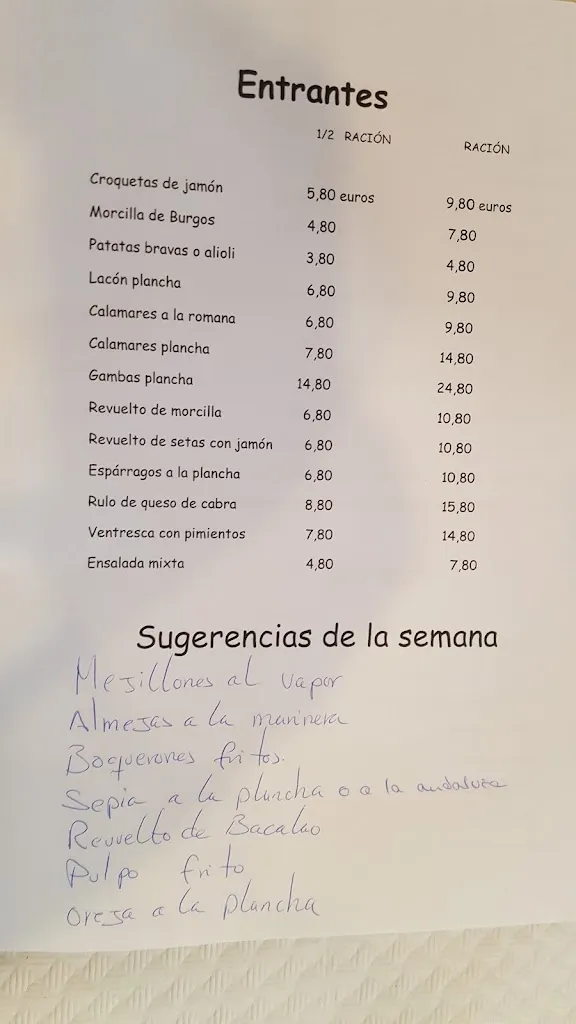 Entrantes
1/2 RACIÓN RACIÓN
Croquetas de jamón 5,80 euros 9,80 euros
Morcilla de Burgos 4,80 7,80
Patatas bravas o alioli 3,80 4,80
Lacón plancha 6,80 9,80
Calamares a la romana 6,80 9,80
Calamares plancha 7,80 14,80
Gambas plancha 14,80 24,80
Revuelto de morcilla 6,80 10,80
Revuelto de setas con jamón 6,80 10,80
Espárragos a la plancha 6,80 10,80
Rulo de queso de cabra 8,80 15,80
Ventresca con pimientos 7,80 14,80
Ensalada mixta 4,80 7,80
Sugerencias de la semana
Mejillones al vapor
Almejas a la marinera
Boquerones fritos.
Sepia a la plancha o a la andaluza
Revuelto de Bacalao
Pulpo frito
Oreja a la plancha